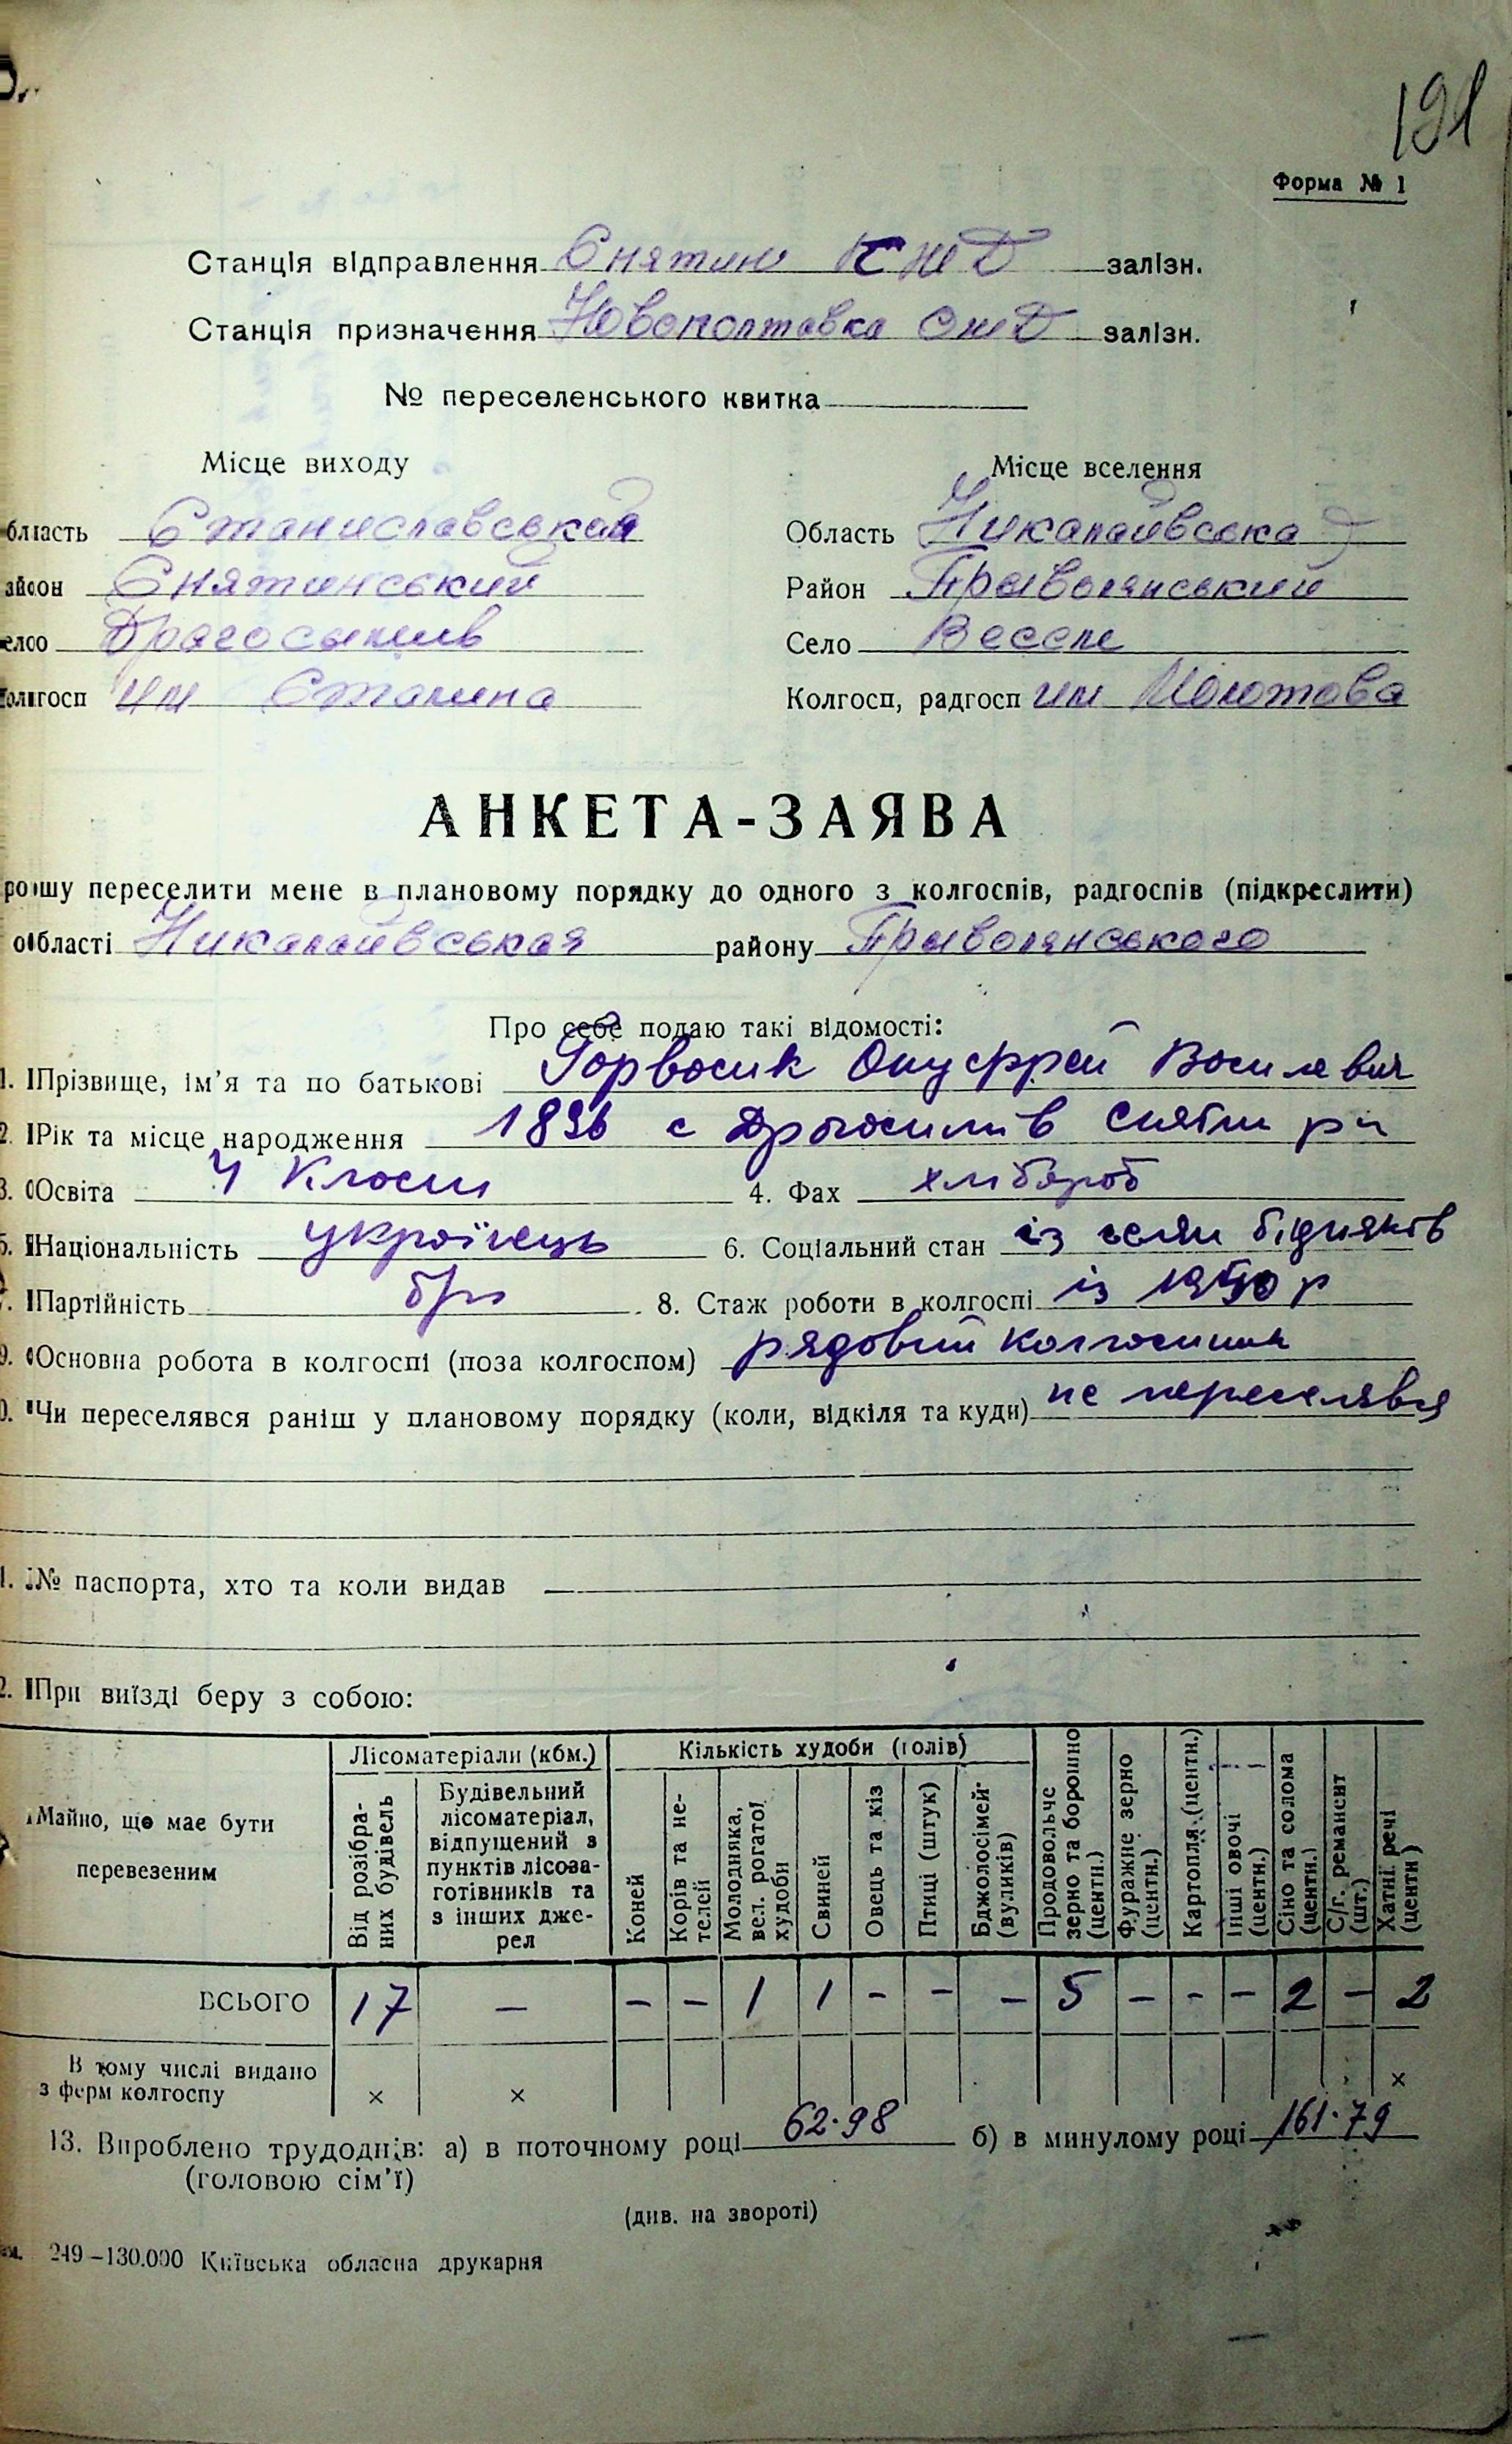 191
Форма № 1
Станція відправлення Снятин КЖД залізн.
Станція призначення Новополтавка ОЖД залізн.
№ переселенського квитка
Місце виходу Місце вселення
бласть Станиславськая Область Никалаивська
айон Снятинський Район Прыволянський
ело Драгосымив Село Веселе
олгосп им Сталина Колгосп, радгосп им Молотова
АНКЕТА-ЗАЯВА
рошу переселити мене в плановому порядку до одного з колгоспів, радгоспів (підкреслити)
області Никалаивськая району Прыволянського
Про себе подаю такі відомості:
1. Прізвище, ім’я та по батькові Онуфрей Василевич
2. Рік та місце народження 1896 с Драгосимів Снятин рн
3. Освіта 4 Класи 4. Фах хлібароб
5. Національність українець 6. Соціальний стан із селян бідняків
7. Партійність б/п 8. Стаж роботи в колгоспі із 1950 р
9. Основна робота в колгоспі (поза колгоспом) рядовий колгоспник
0. Чи переселявся раніш у плановому порядку (коли, відкіля та куди) не переселявся
1. № паспорта, хто та коли видав
2. При виїзді беру з собою:
Майно, що має бути перевезеним
Лісоматеріали (кбм.)
Від розібраних будівель
Будівельний лісоматеріал, відпущений з пунктів лісозаготівників та з інших джерел
Кількість худоби (голів)
Коней
Корів та нетелей
Молодняка, вел. рогатої худоби
Свиней
Овець та кіз
Птиці (штук)
Бджолосімей (вуликів)
Продовольче зерно та борошно (центн.)
Фуражне зерно (центн.)
Картопля (центн.)
Інші овочі (центн.)
Сіно та солома (центн.)
С/г. реманент (шт.)
Хатні речі (центн)
ВСЬОГО 17 — – – 1 1 – – – 5 – – – 2 – 2
В тому числі видано
з ферм колгоспу × × ×
13. Вироблено трудоднів: а) в поточному році 62.98 б) в минулому році 161.79
(головою сім’ї)
(див. на звороті)
249–130.000 Київська обласна друкарня